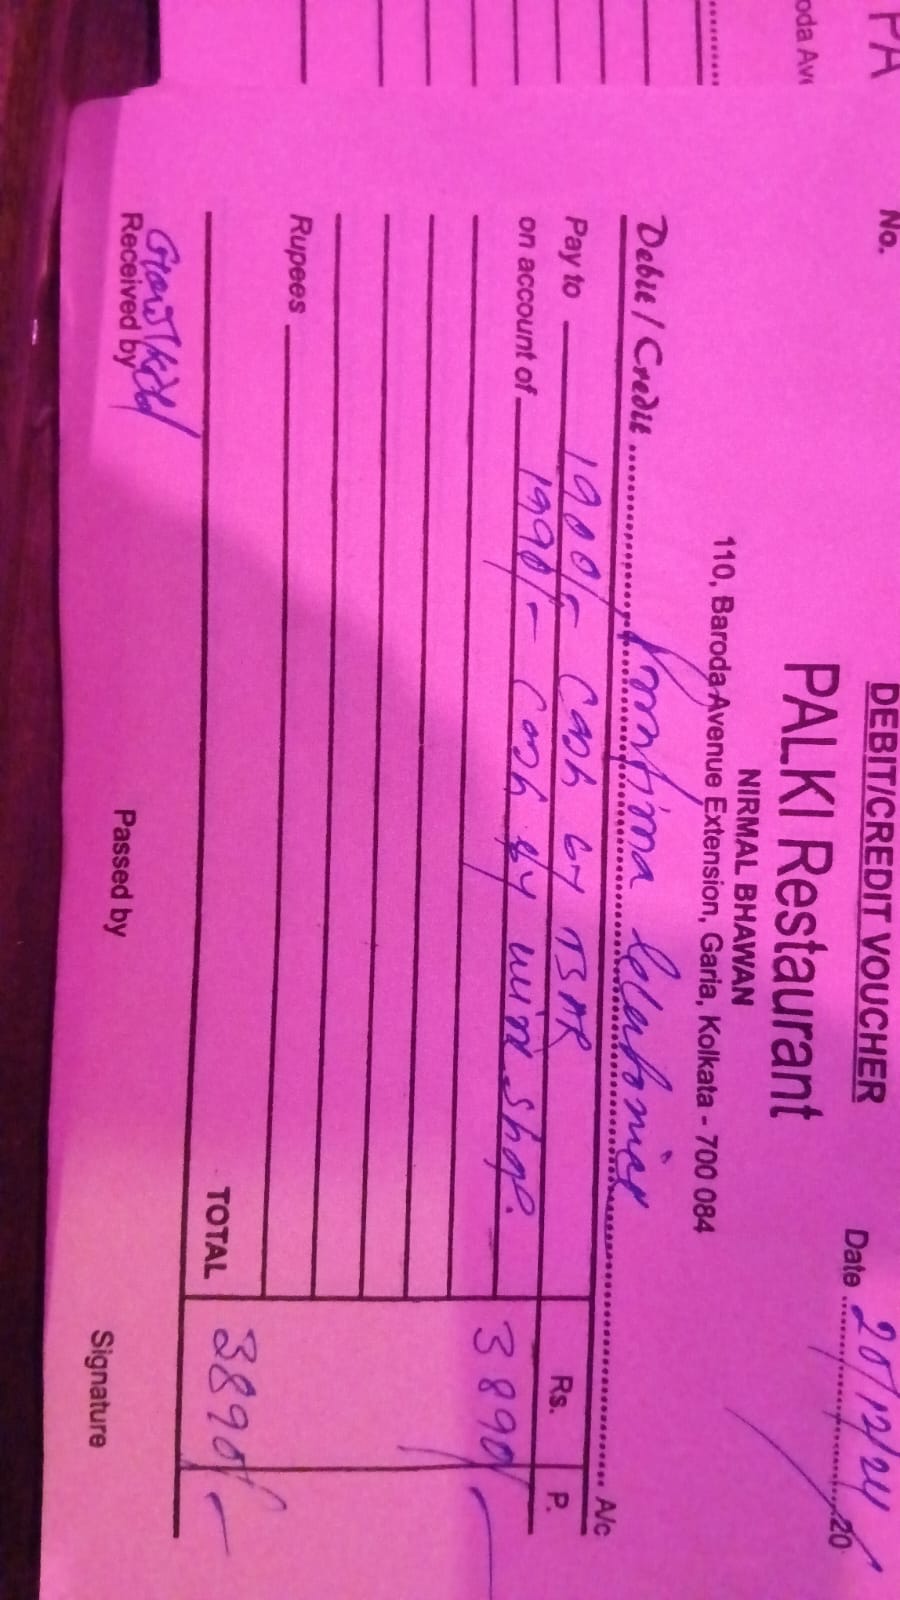 PA
oda Av
DEBIT/CREDIT VOUCHER
PALKI Restaurant
NIRMAL BHAWAN
110, Baroda Avenue Extension, Garia, Kolkata - 700 084
No.
Date 20/12/24 20
Debit / Credit A/c
Pay to 1900/- Cash by BAR Rs. P.
on account of 1990/- Cash by wine shop. 3890/-
Rupees
TOTAL 3890/-
Received by Passed by Signature